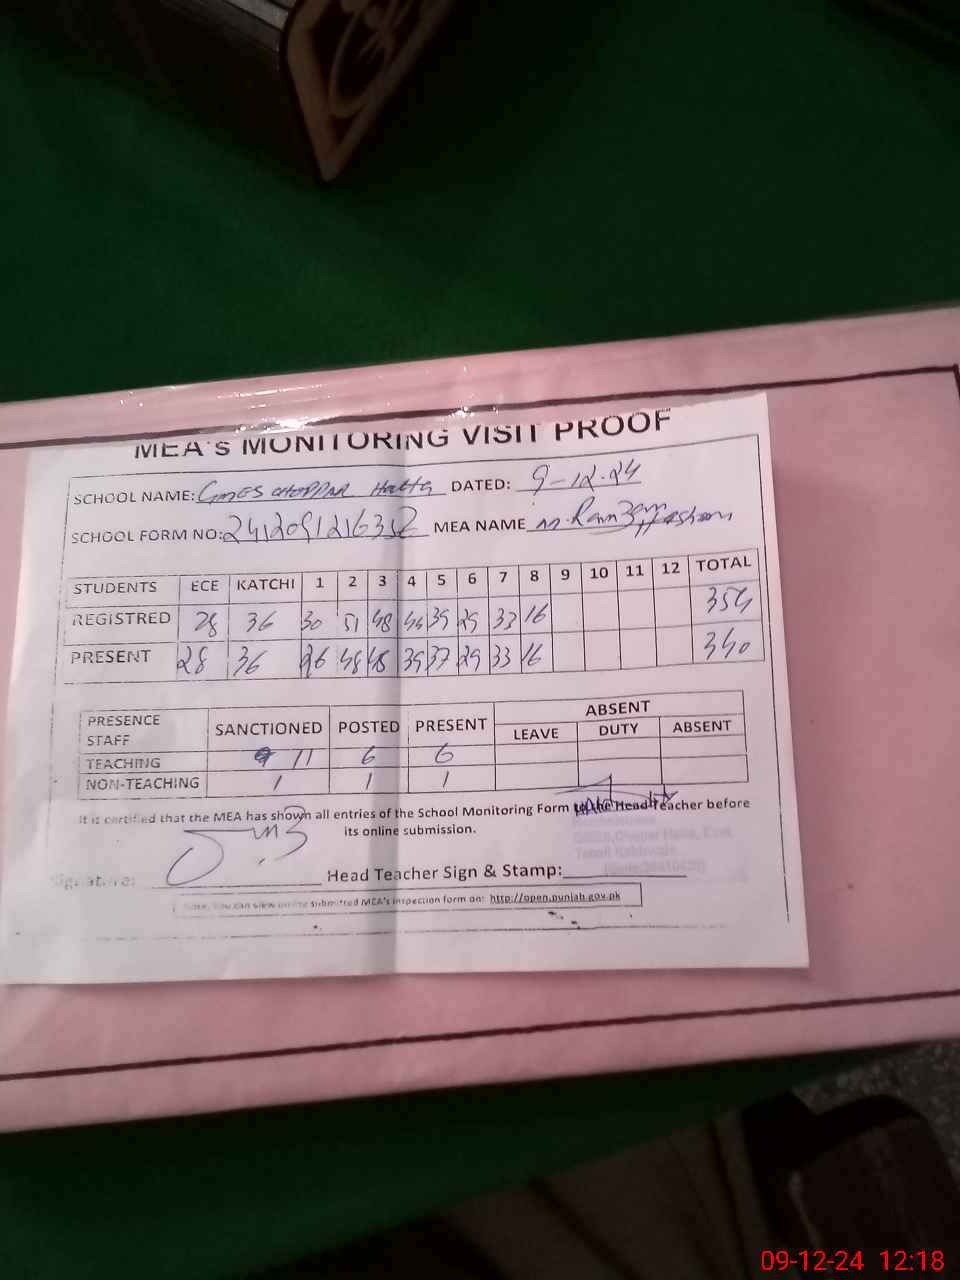 MEA's MONITORING VISIT PROOF
SCHOOL NAME: GMES CHOPPAR Hatta DATED: 9-12-24
SCHOOL FORM NO: MEA NAME M. Ramzan Hashmi
STUDENTS ECE KATCHI 1 2 3 4 5 6 7 8 9 10 11 12 TOTAL
REGISTRED 28 36 30 51 48 44 39 29 33 16 354
PRESENT 28 36 26 48 48 39 37 29 33 16 340
PRESENCE STAFF SANCTIONED POSTED PRESENT ABSENT
LEAVE DUTY ABSENT
TEACHING 11 6 6
NON-TEACHING 1 1 1
It is certified that the MEA has shown all entries of the School Monitoring Form to the Head Teacher before
its online submission.
Signature: Head Teacher Sign & Stamp:
Note: You can view online submitted MEA's inspection form on: http://open.punjab.gov.pk
09-12-24 12:18